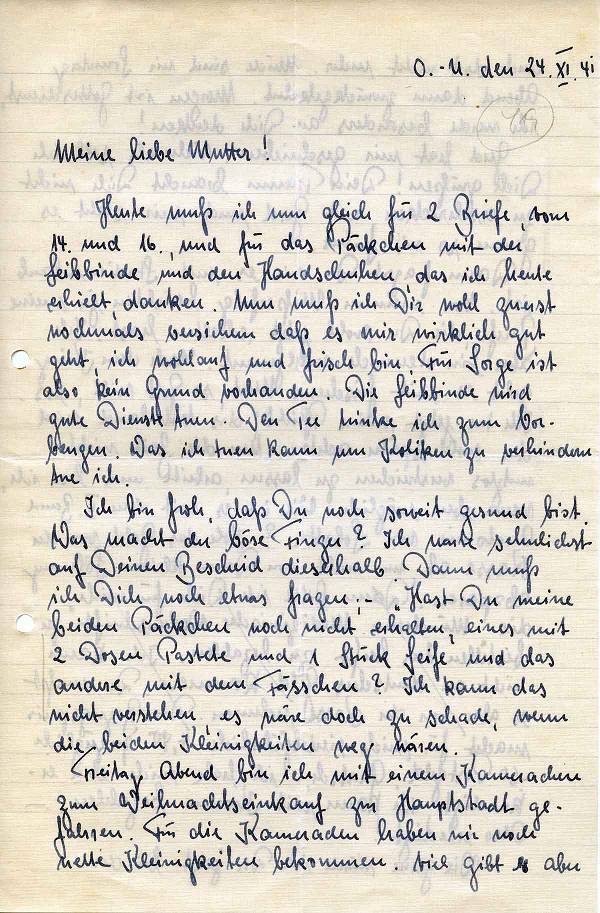 O.-U. den 24. XI. 41
Meine liebe Mutter!
Heute muß ich nun gleich für 2 Briefe, vom
14. und 16., und für das Päckchen mit der
Leibbinde und den Handschuhen, das ich heute
erhielt, danken. Nun muß ich Dir wohl zuerst
nochmals versichern daß es mir wirklich gut
geht, ich wohlauf und frisch bin. Für Sorge ist
also kein Grund vorhanden. Die Leibbinde wird
gute Dienste tuen. Den Tee trinke ich zum Vor-
beugen. Was ich tuen kann um Koliken zu verhindern
tue ich.
Ich bin froh, daß Du noch soweit gesund bist.
Was macht der böse Finger? Ich warte sehnlichst
auf Deinen Bescheid dieserhalb. Dann muß
ich Dich noch etwas fragen;- "Hast Du meine
beiden Päckchen noch nicht erhalten, eines mit
2 Dosen Pastete und 1 Stück Seife und das
andere mit dem Fässchen? Ich kann das
nicht verstehen es wäre doch zu schade, wenn
die beiden Kleinigkeiten weg wären.
Freitag Abend bin ich mit einem Kameraden
zum Weihnachtseinkauf zur Hauptstadt ge-
fahren. Für die Kameraden haben wir noch
nette Kleinigkeiten bekommen. Viel gibt es aber